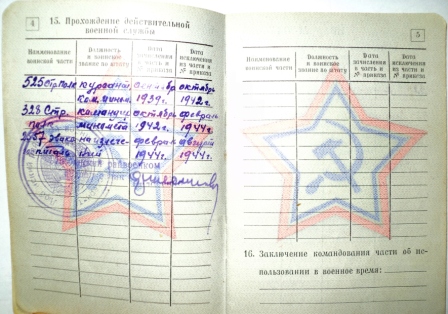 4
15. Прохождение действительной
военной службы
Наименование воинской части
Должность и воинское звание по штату
Дата зачисления в часть и № приказа
Дата исключения из части и № приказа
525 Стр. Полк курсант октябрь
1939г. 1942г.
328 Стр. октябрь февраль
миномета 1942г. 1944г.
на излече- феврал август
нии 1944г. 1944г.
5
Наименование воинской части
Должность и воинское звание по штату
Дата зачисления в часть и № приказа
Дата исключения из части и № приказа
16. Заключение командования части об ис-
пользовании в военное время: